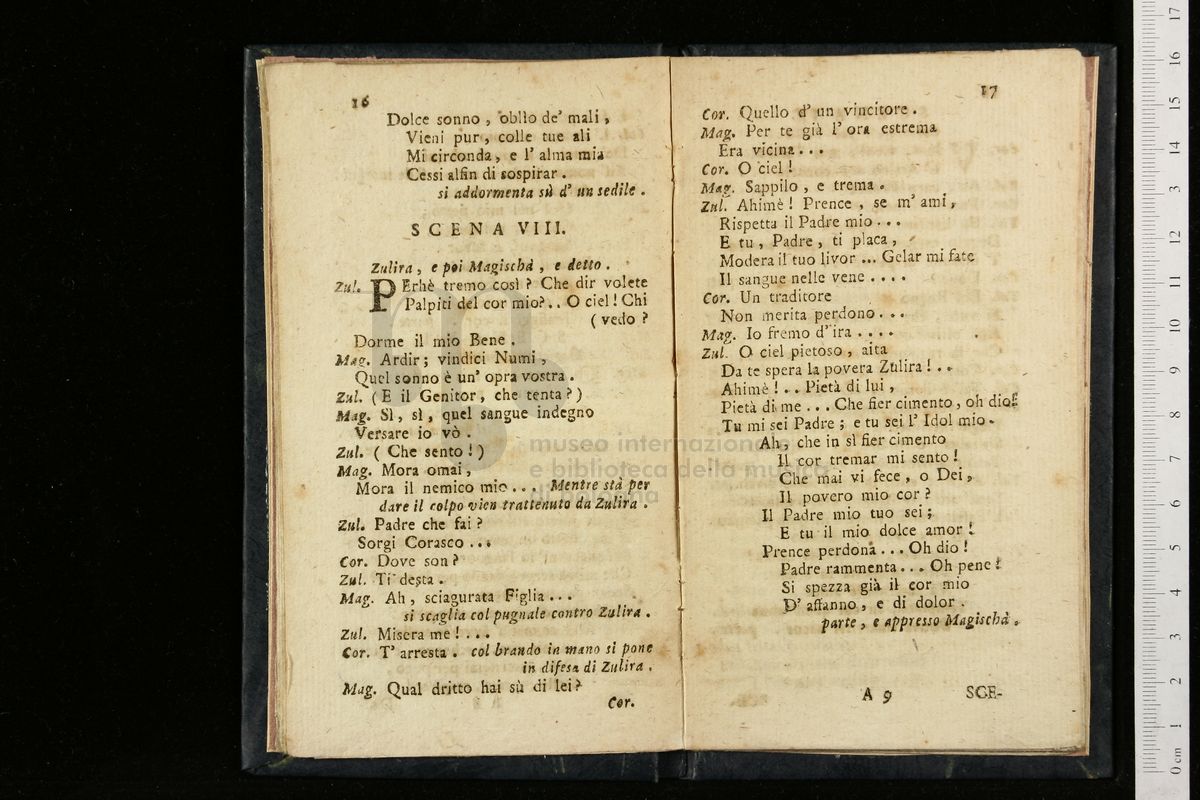 16
Dolce sonno , obllo de' mali ,
Vieni pur , colle tue ali
Mi circonda , e l' alma mia
Cessi alfin di sospirar .
si addormenta sù d' un sedile .
SCENA VIII.
Zulira , e poi Magischà , e detto .
Zul. PErhè tremo così ? Che dir volete
Palpiti del cor mio?.. O ciel ! Chi
( vedo ?
Dorme il mio Bene .
Mag. Ardir ; vindici Numi ,
Quel sonno è un' opra vostra .
Zul. ( E il Genitor , che tenta ? )
Mag. Sì , sì , quel sangue indegno
Versare io vò .
Zul. ( Che sento ! )
Mag. Mora omai ,
Mora il nemico mio ... Mentre stà per
dare il colpo vien trattenuto da Zulira .
Zul. Padre che fai ?
Sorgi Corasco ...
Cor. Dove son ?
Zul. Ti desta .
Mag. Ah , sciagurata Figlia ...
si scaglia col pugnale contro Zulira .
Zul. Misera me ! ...
Cor. T' arresta . col brando in mano si pone
in difesa di Zulira .
Mag. Qual dritto hai sù di lei ?
Cor.
17
Cor. Quello d' un vincitore .
Mag. Per te già l' ora estrema
Era vicina ...
Cor. O ciel !
Mag. Sappilo , e trema .
Zul. Ahimè ! Prence , se m' ami ,
Rispetta il Padre mio ...
E tu , Padre , ti placa ,
Modera il tuo livor ... Gelar mi fate
Il sangue nelle vene ....
Cor. Un traditore
Non merita perdono ...
Mag. Io fremo d' ira ....
Zul. O ciel pietoso , aita
Da te spera la povera Zulira ! ..
Ahimè ! .. Pietà di lui ,
Pietà di me ... Che fier cimento , oh dio!
Tu mi sei Padre ; e tu sei l' Idol mio .
Ah , che in sì fier cimento
Il cor tremar mi sento !
Che mai vi fece , o Dei ,
Il povero mio cor ?
Il Padre mio tuo sei ;
E tu il mio dolce amor !
Prence perdona ... Oh dio !
Padre rammenta ... Oh pene !
Si spezza già il cor mio
D' affanno , e di dolor .
parte , e appresso Magischà .
A 9 SCE-
museo internazionale
e biblioteca della musica
di bologna
0 cm 1 2 3 4 5 6 7 8 9 10 11 12 13 14 15 16 17